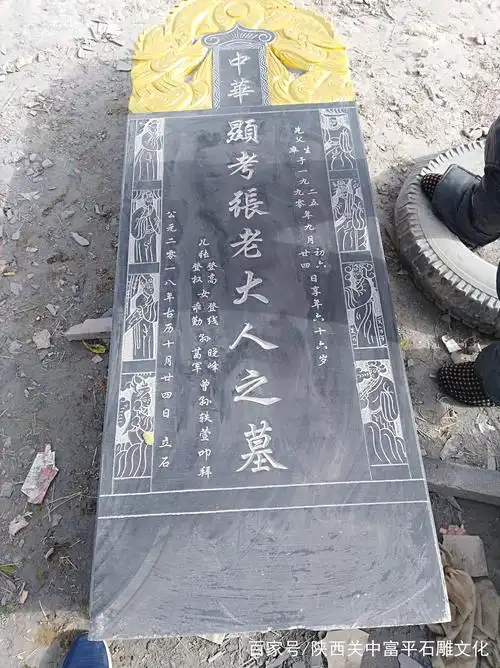 中華
先父生卒于一九二五九〇年九月初六廿四日享年六十六岁
顯考張老大人之墓
儿张登高登权女登线乖勤孙晓峰苗军曾孙轶萱叩拜
公元二零一八年古历十月廿四日 立石
百家号/陕西关中富平石雕文化